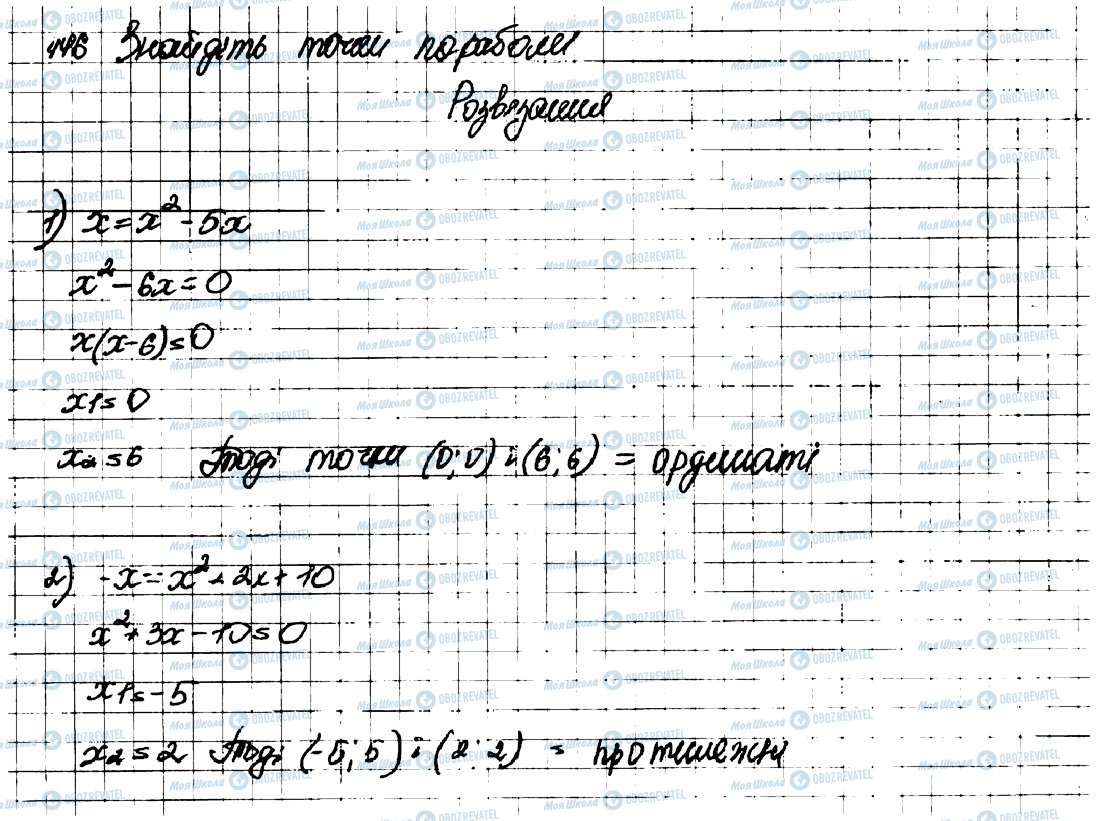 446 Знайдіть точки параболи
Розвязання
1) x = x² - 5x
x² - 6x = 0
x(x-6) = 0
x1 = 0
x2 = 6 Тоді точки (0;0) і (6;6) = ординаті
2) -x = x² + 2x + 10
x² + 3x - 10 = 0
x1 = -5
x2 = 2 Тоді (-5;5) і (2;2) = протилежні